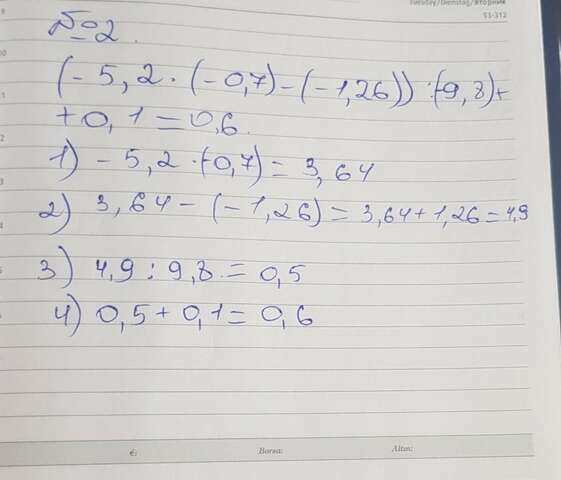 Tuesday/Dienstag/Вторник
51-312
№2.
(-5,2·(-0,7)-(-1,26)):(-9,8)+
+0,1=0,6.
1) -5,2·(-0,7)=3,64
2) 3,64-(-1,26)=3,64+1,26=4,9
3) 4,9:9,8=0,5
4) 0,5+0,1=0,6
€: Borsa: Altın: